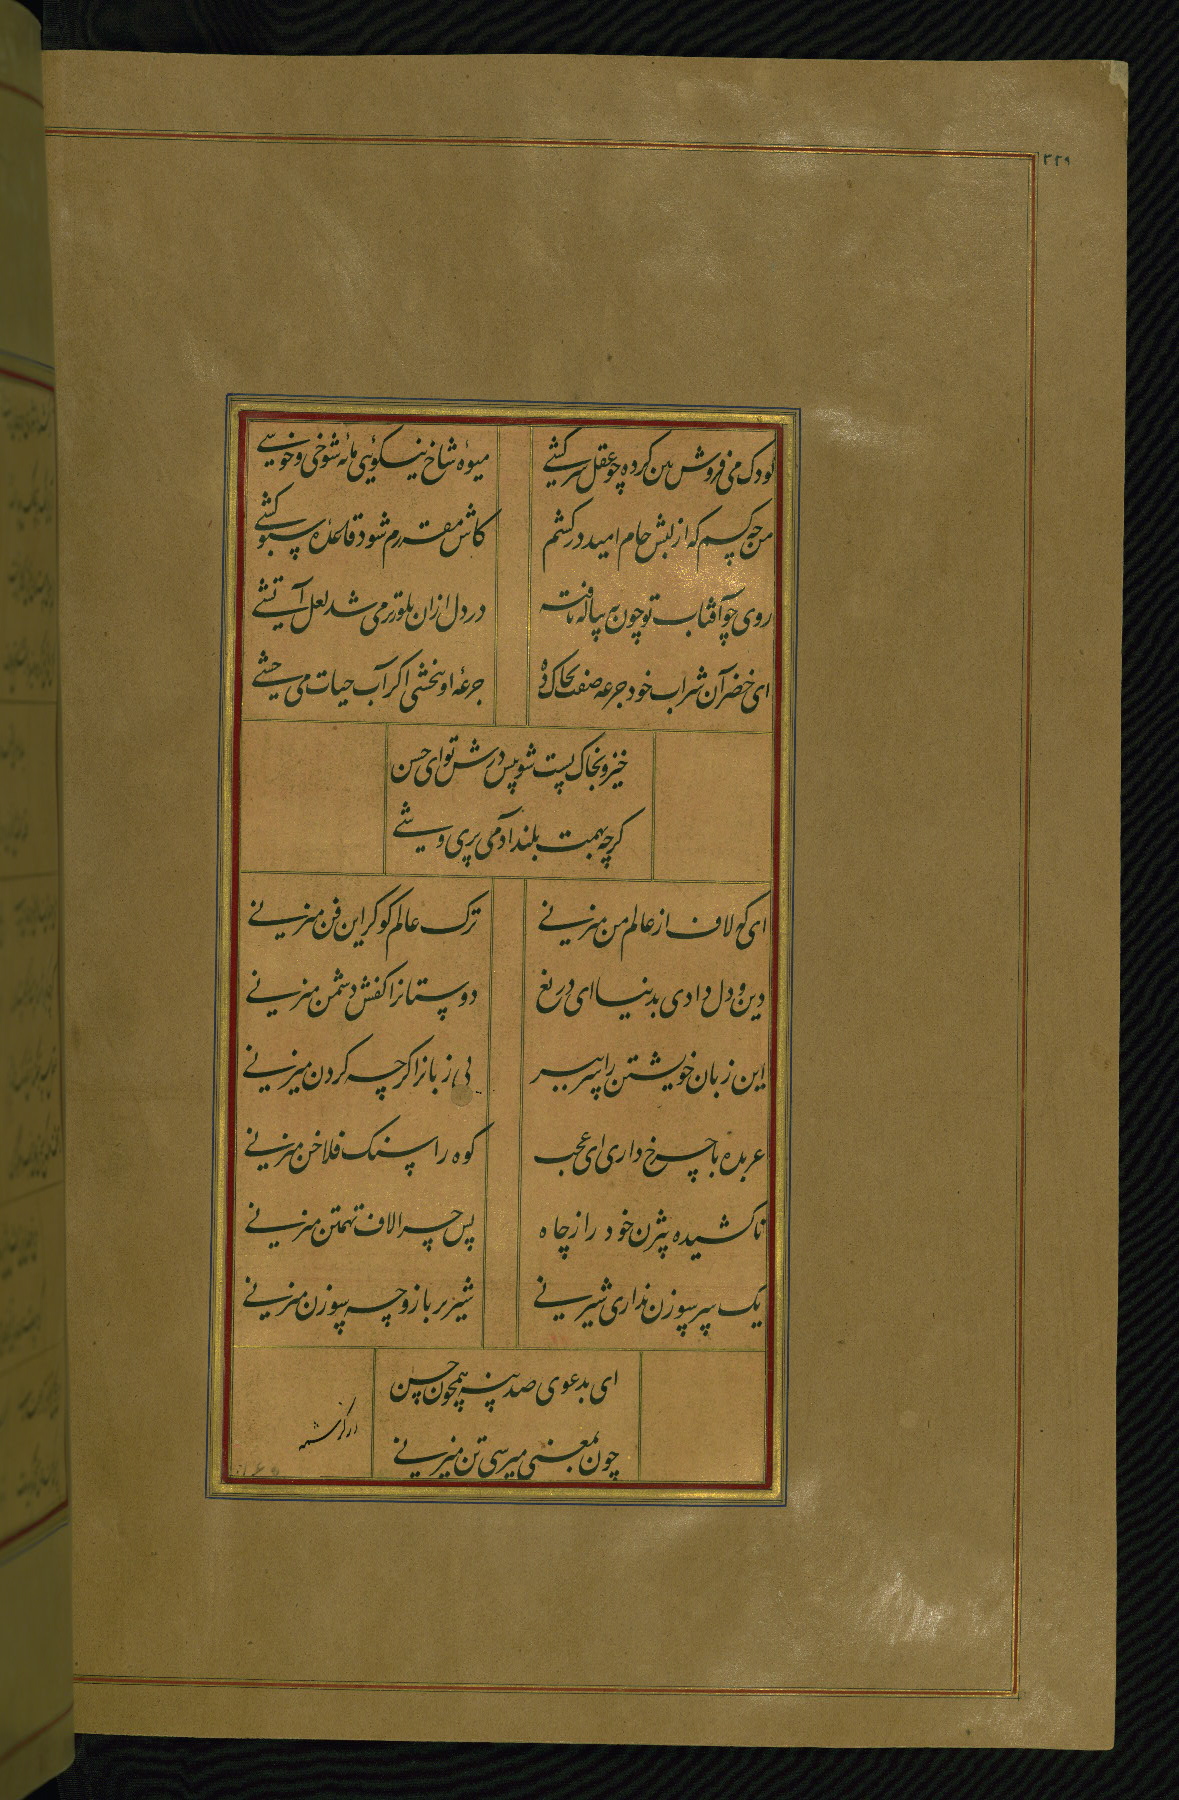 ۲۲۹
کودک می فروش من کرده چو عقل سرکشی
میوهٔ شاخ نیکوئی مائهٔ شوخی و خوشی
من چه کسم که از لبش جام امید درکشم
کاش مقررم شود قاعدهٔ سبوکشی
روی چو آفتاب تو چون به پیاله تافته
در دل ازان بلور تر می شد لعل آتشی
ای خضر آن شراب خود جرعه صفت بخاک ده
جرعهٔ او نبخشی اکر آب حیات می چشی
خیز و بخاک پست شو پیش درش تو ای حسن
کرچه بهمت بلند آدمی پری وشی
ای که لاف از عالم من میزنی
ترک عالم کو کر این فن میزنی
دین و دل دادی بدنیا ای دریغ
دوستانرا کفش دشمن میزنی
این زبان خویشتن را سر ببر
بی زبانرا کرچه کردن میزنی
عربده با چرخ داری ای عجب
کوه را سنک فلاخن میزنی
ناکشیده بیژن خود را ز چاه
پس چرا لاف تهمتن میزنی
یک سر سوزن نداری شیریی
شیر بر بازو چه سوزن میزنی
ای بدعوی صد سنه همچون حسن
چون بمعنی میرسی تن میزنی